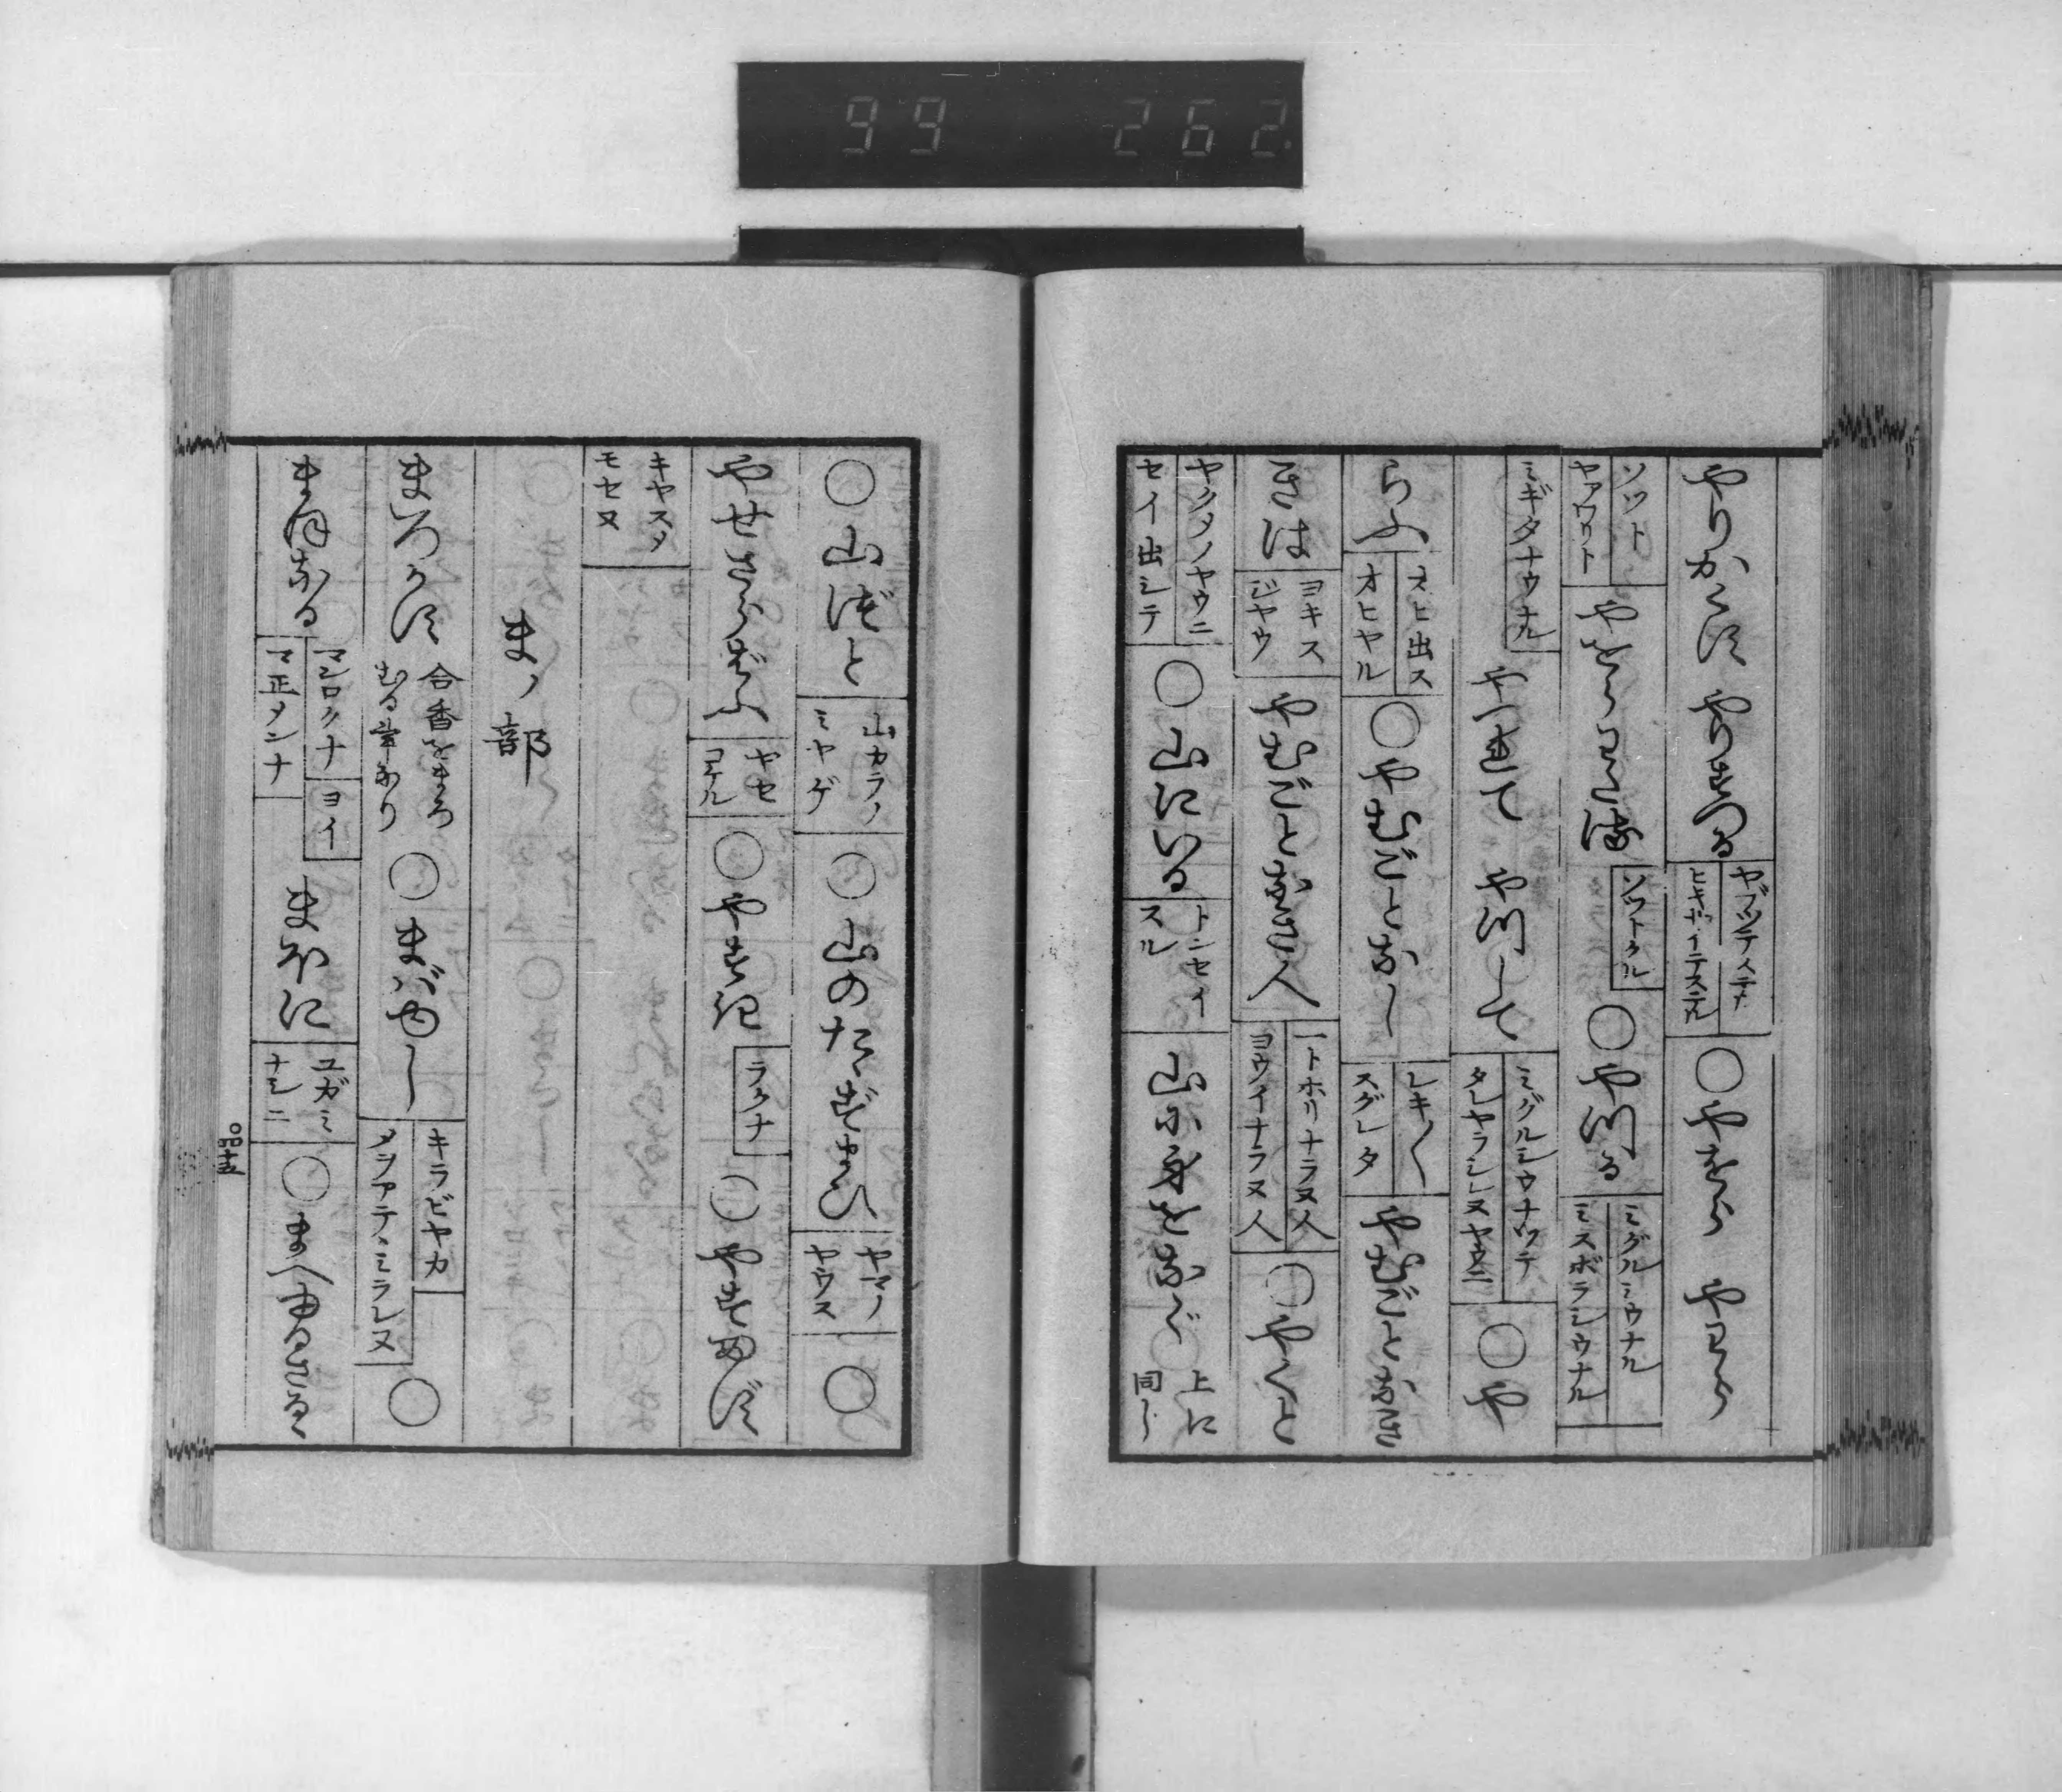 99 262
やりかへす やりすつる
ヤブツテステル
ヒキサイテステル
○やをら やはら
ソツト
ヤアウリト
やをらすべる
ソツトクル
○やつる
ミグルシウナル
ミスボラシウナル
ミギタナウナル
やつれて やつして
ミグルシウナツテ
○や
らふ
オヒ出ス
オヒヤル
○やむごとなし
レキ〱
スグレタ
やむごとなき
きは
ヨキス
ジヤウ
やむごとなき人
一トホリナラヌ人
ヨウイナラヌ人
○やくと
ヤクタノヤウニ
セイ出シテ
○山にいる
トンセイ
スル
山に身をなぐ
上に
同し
○山づと
山カラノ
ミヤゲ
○山のたゝずまひ
ヤマノ
ヤウス
○
やせさらぼふ
ヤセ
コケル
○やすき
ラクナ
○やすめず
キヤスメ
モセヌ
まノ部
まろかす
合香をまろ
むる事あり
○まばゆし
キラビヤカ
メヲアテヽミラレヌ
○
まほなる
マシロクナ
ヨイ
マ正メンナ
まほに
ユガミ
ナシニ
○まへ申さる